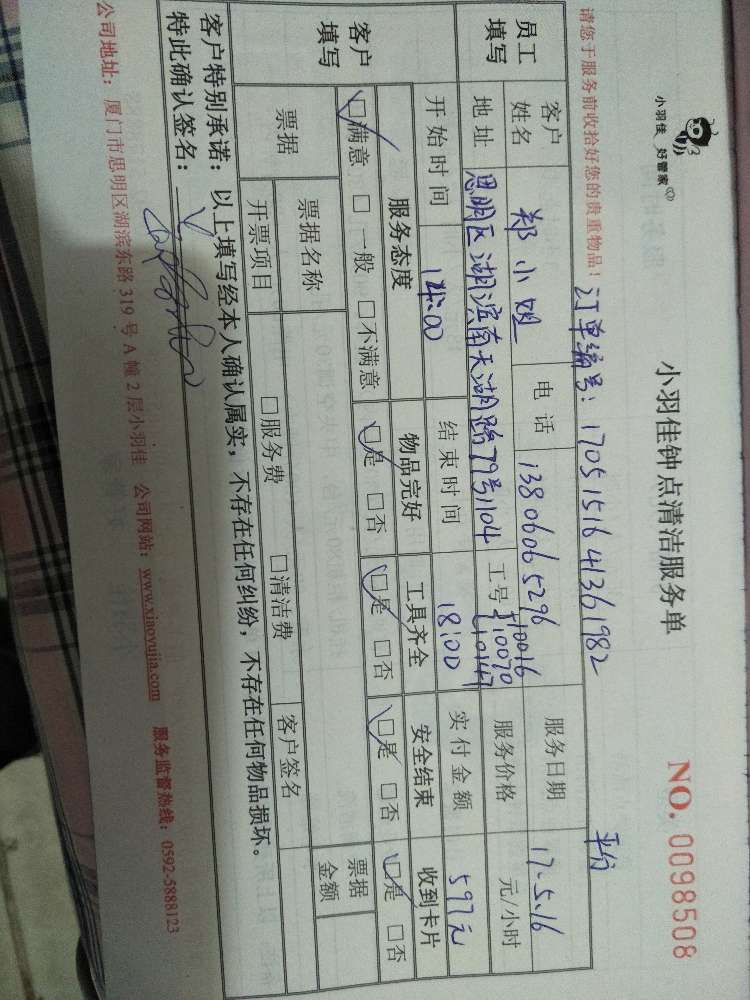 小羽佳 好管家
小羽佳钟点清洁服务单
NO. 0098508
请您于服务前收拾好您的贵重物品！
订单编号：1705151641361982
平分
员工填写 客户姓名 郑小姐 电话 13806065296 服务日期 17.5.16
地址 思明区湖滨南天湖路79号104 工号 服务价格 元/小时
210070
开始时间 14:00 结束时间 18:00 实付金额 597元
客户填写 服务态度 物品完好 工具齐全 安全结束 收到卡片
□满意 □一般 □不满意 □是 □否 □是 □否 □是 □否 □是 □否
票据 票据名称 票据金额
开票项目 □服务费 □清洁费 客户签名
客户特别承诺：以上填写经本人确认属实，不存在任何纠纷，不存在任何物品损坏。
特此确认签名：
公司地址：厦门市思明区湖滨东路319号A幢2层小羽佳 公司网站：www.xiaoyujia.com 服务监督热线：0592-5888123